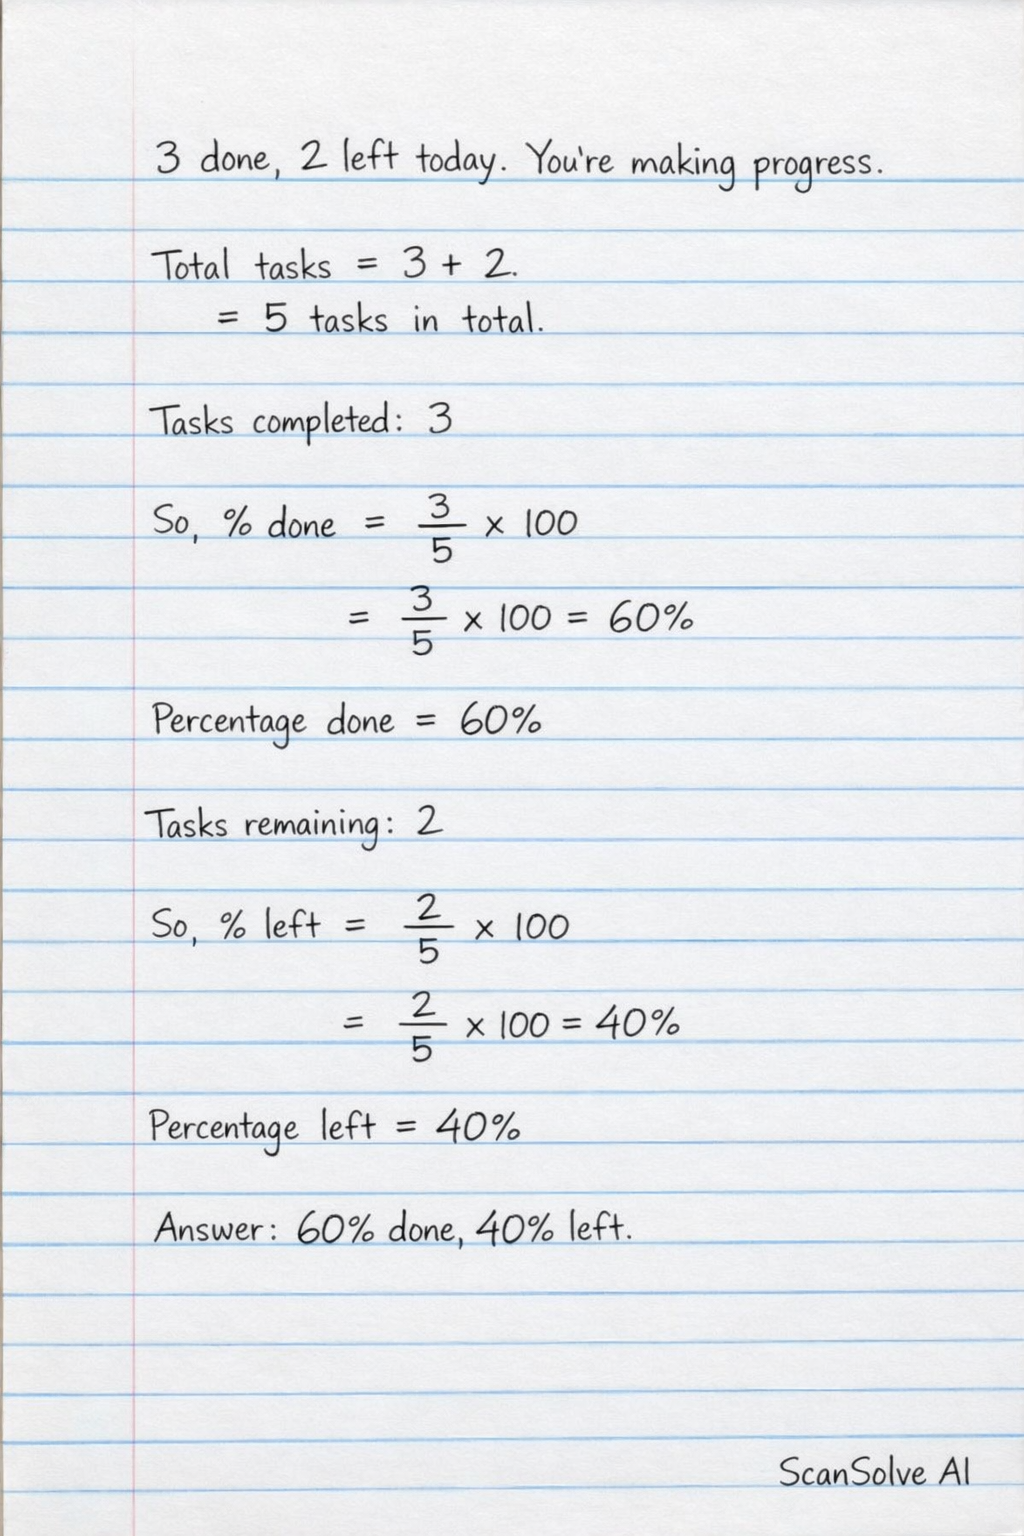 3 done, 2 left today. You're making progress.
Total tasks = 3 + 2.
= 5 tasks in total.
Tasks completed: 3
So, % done = 3/5 x 100
= 3/5 x 100 = 60%
Percentage done = 60%
Tasks remaining: 2
So, % left = 2/5 x 100
= 2/5 x 100 = 40%
Percentage left = 40%
Answer: 60% done, 40% left.
ScanSolve AI